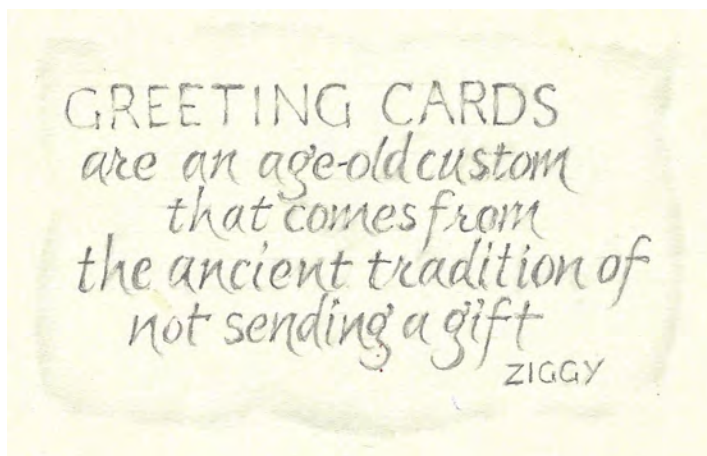 GREETING CARDS
are an age-old custom
that comes from
the ancient tradition of
not sending a gift
ZIGGY